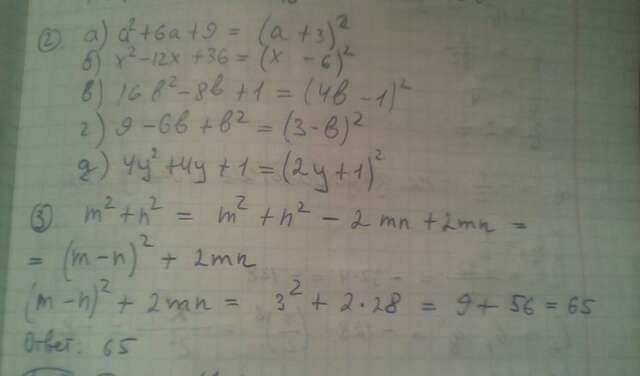 ② а) a²+6a+9 = (a+3)²
б) x²-12x+36 = (x-6)²
в) 16b²-8b+1 = (4b-1)²
г) 9-6b+b² = (3-b)²
д) 4y²+4y+1=(2y+1)²
③ m²+n² = m²+n²-2mn+2mn =
= (m-n)² + 2mn
(m-n)²+2mn = 3²+2·28 = 9+56=65
Ответ: 65